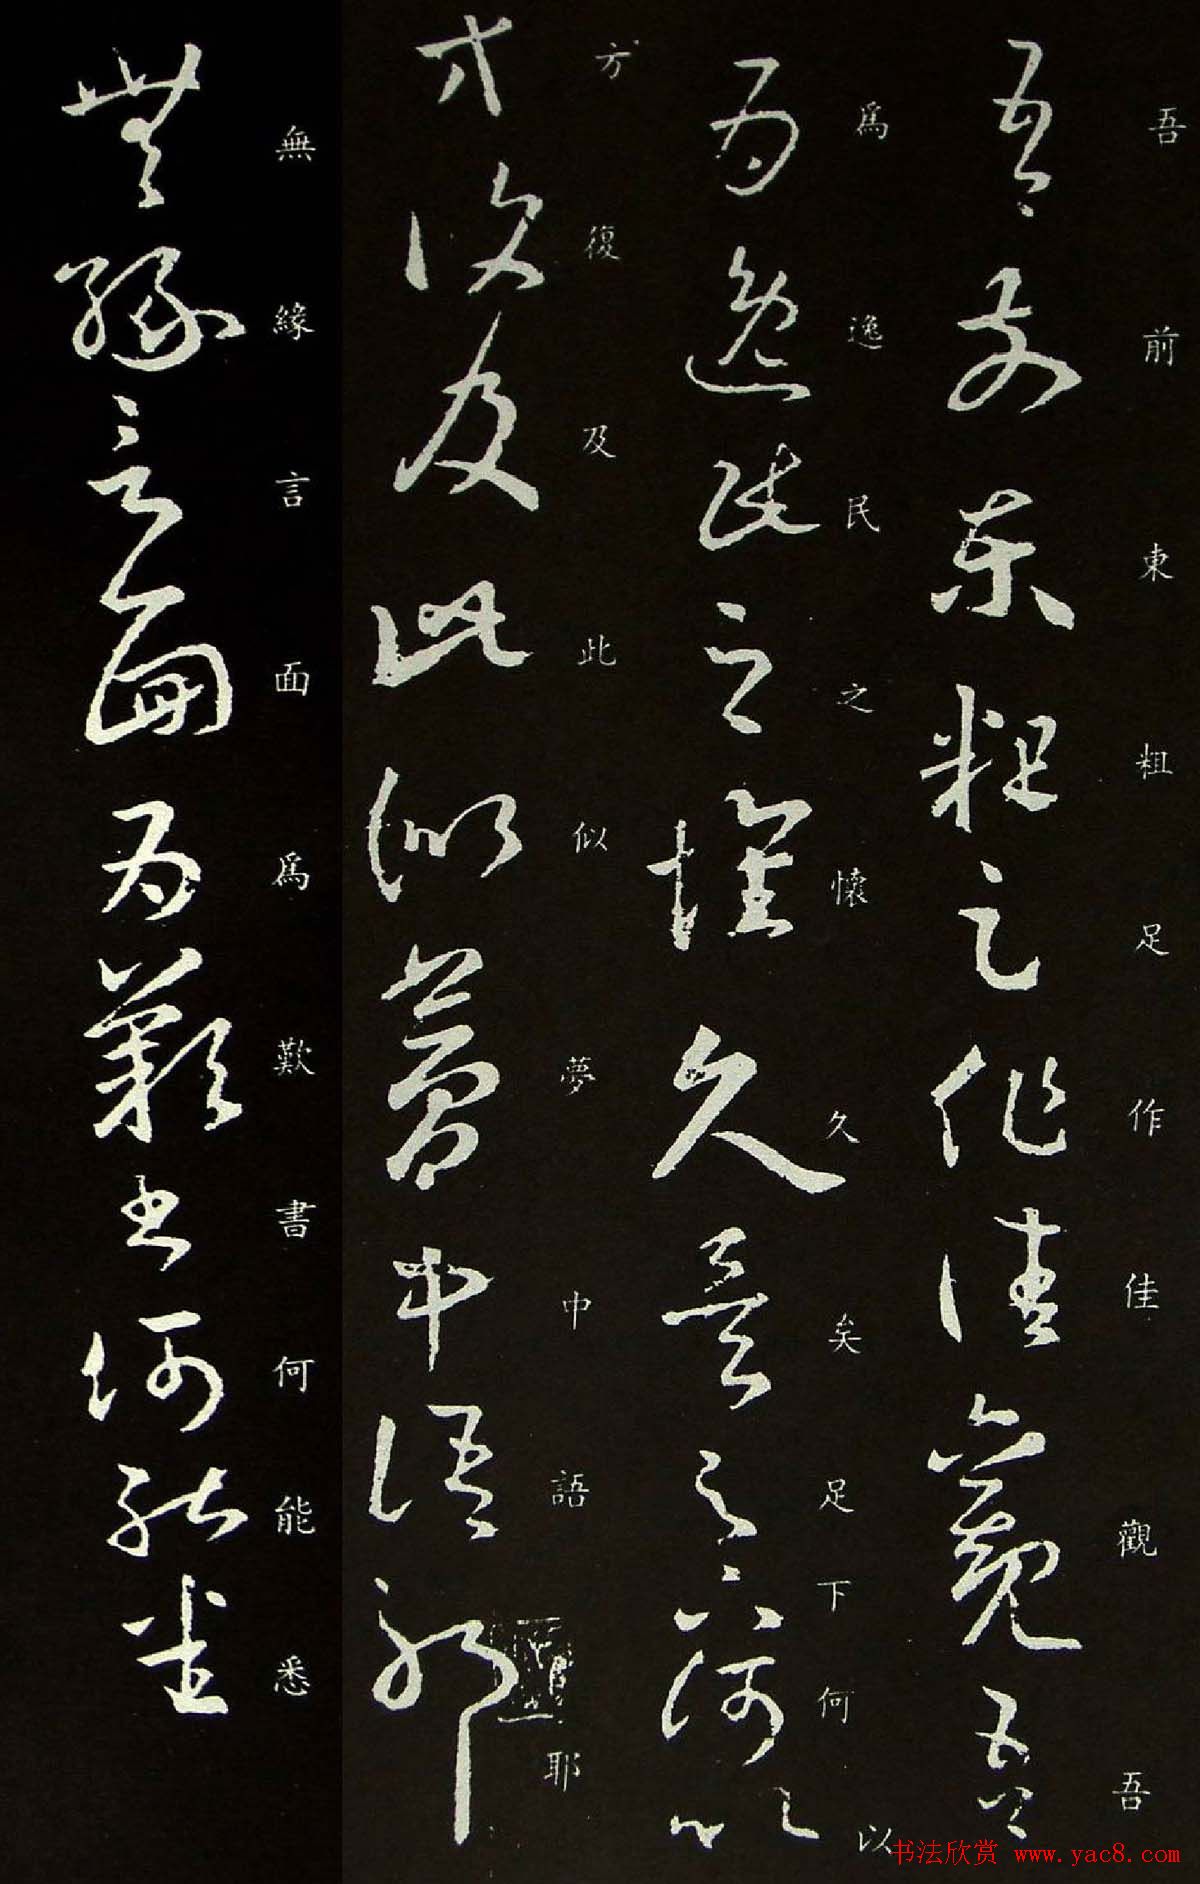 吾前東粗足作佳觀吾
為逸民之懷久矣足下何以
方復及此似夢中語耶
無緣言面為歎書何能悉
书法欣赏 www.yac8.com